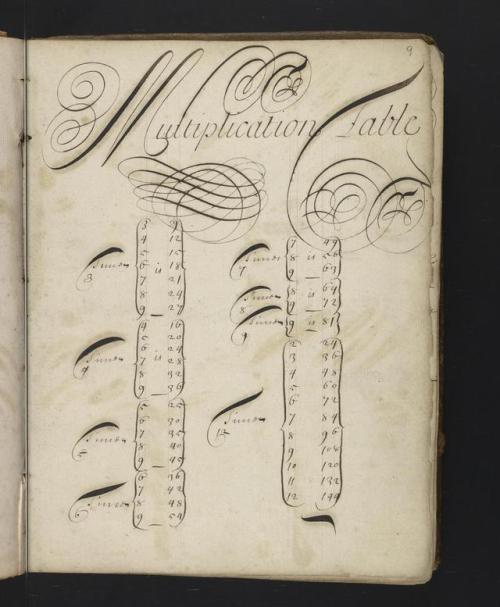 9
Multiplication Table
3 Times
3 is 9
4 12
5 15
6 18
7 21
8 24
9 27
4 Times
4 is 16
5 20
6 24
7 28
8 32
9 36
5 Times
5 25
6 30
7 35
8 40
9 45
6 Times
6 36
7 42
8 48
9 54
7 Times
7 is 49
8 56
9 63
8 Times
8 is 64
9 72
9 Times
9 is 81
12 Times
2 24
3 36
4 48
5 60
6 72
7 84
8 96
9 108
10 120
11 132
12 144